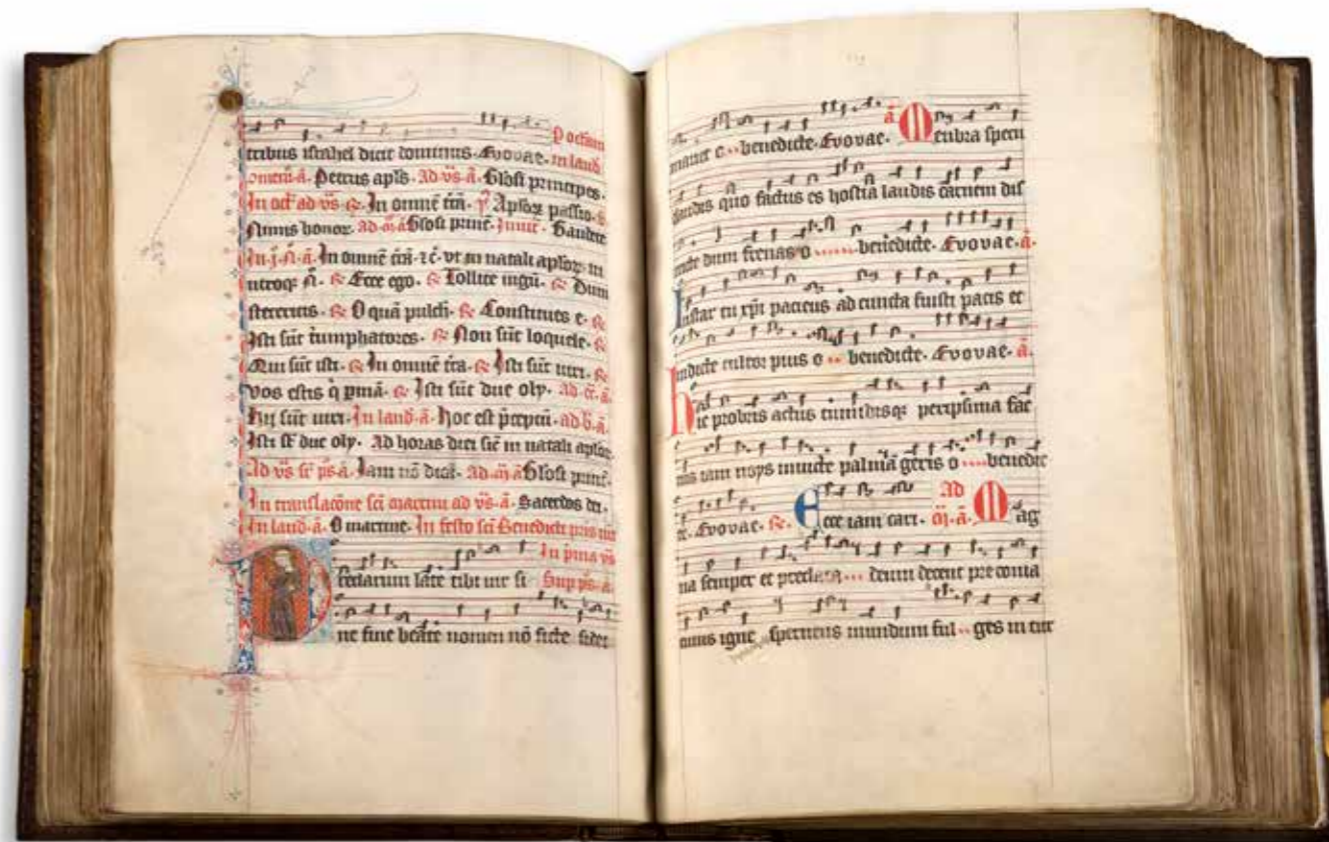 P octauam
tribus israhel dicit dominus. Evovae. in laud
omeliā. ā. Petrus apls. Ad vs ā. Glosi principes.
In oct ad vs R. In omnē trā. V Aplor passio.
Nimis honor. Ad m ā Glosi princ. Inuit. Gaudete
In j. n. ā. In omnē trā. vt in natali aplor. in
utroq n. R. Ecce ego. R. Tollite iugū. R. Dum
steteritis. R. O quā pulch. R. Constitues e. R.
Isti sūt triumphatores. R. Non sūt loquele. R.
Qui sūt isti. R. In omnē trā. R. Isti sūt uiri. R.
vos estis R. Isti sūt due oly. Ad ā
Hii sūt uiri. In laud. ā. Hoc est pceptū. ad b. ā.
Isti st due oly. Ad horas diei sic in natali aplor
Ad vs sr ps ā. Iam nō dicā. Ad m ā Glosi princ.
In translacōne sci martini ad vs. ā. Sacerdos dei.
In laud. ā. O martine. In festo sci Benedicti
In pma vs
Preclarum lāte tibi uir si Sup ps. ā.
ne fine beāte nomen nō ficte fidei
benedicte. Evovae. ā Membra specu
laudis quo factus es hostia laudis carnem dis
dum frenas o benedicte. Evovae. ā.
Instar tu xpi paciens ad cuncta fuisti pacis et
indicte cultor pius o benedicte. Evovae. ā.
Hic probris actus peripsima fac
tus iam noys inuicte palmā geris o benedic
te. Evovae. R. Ecce iam cari. Ad m. ā. Mag
na semper et preclara deum decent preconia
cuius igne spernens mundum ful ges in tur